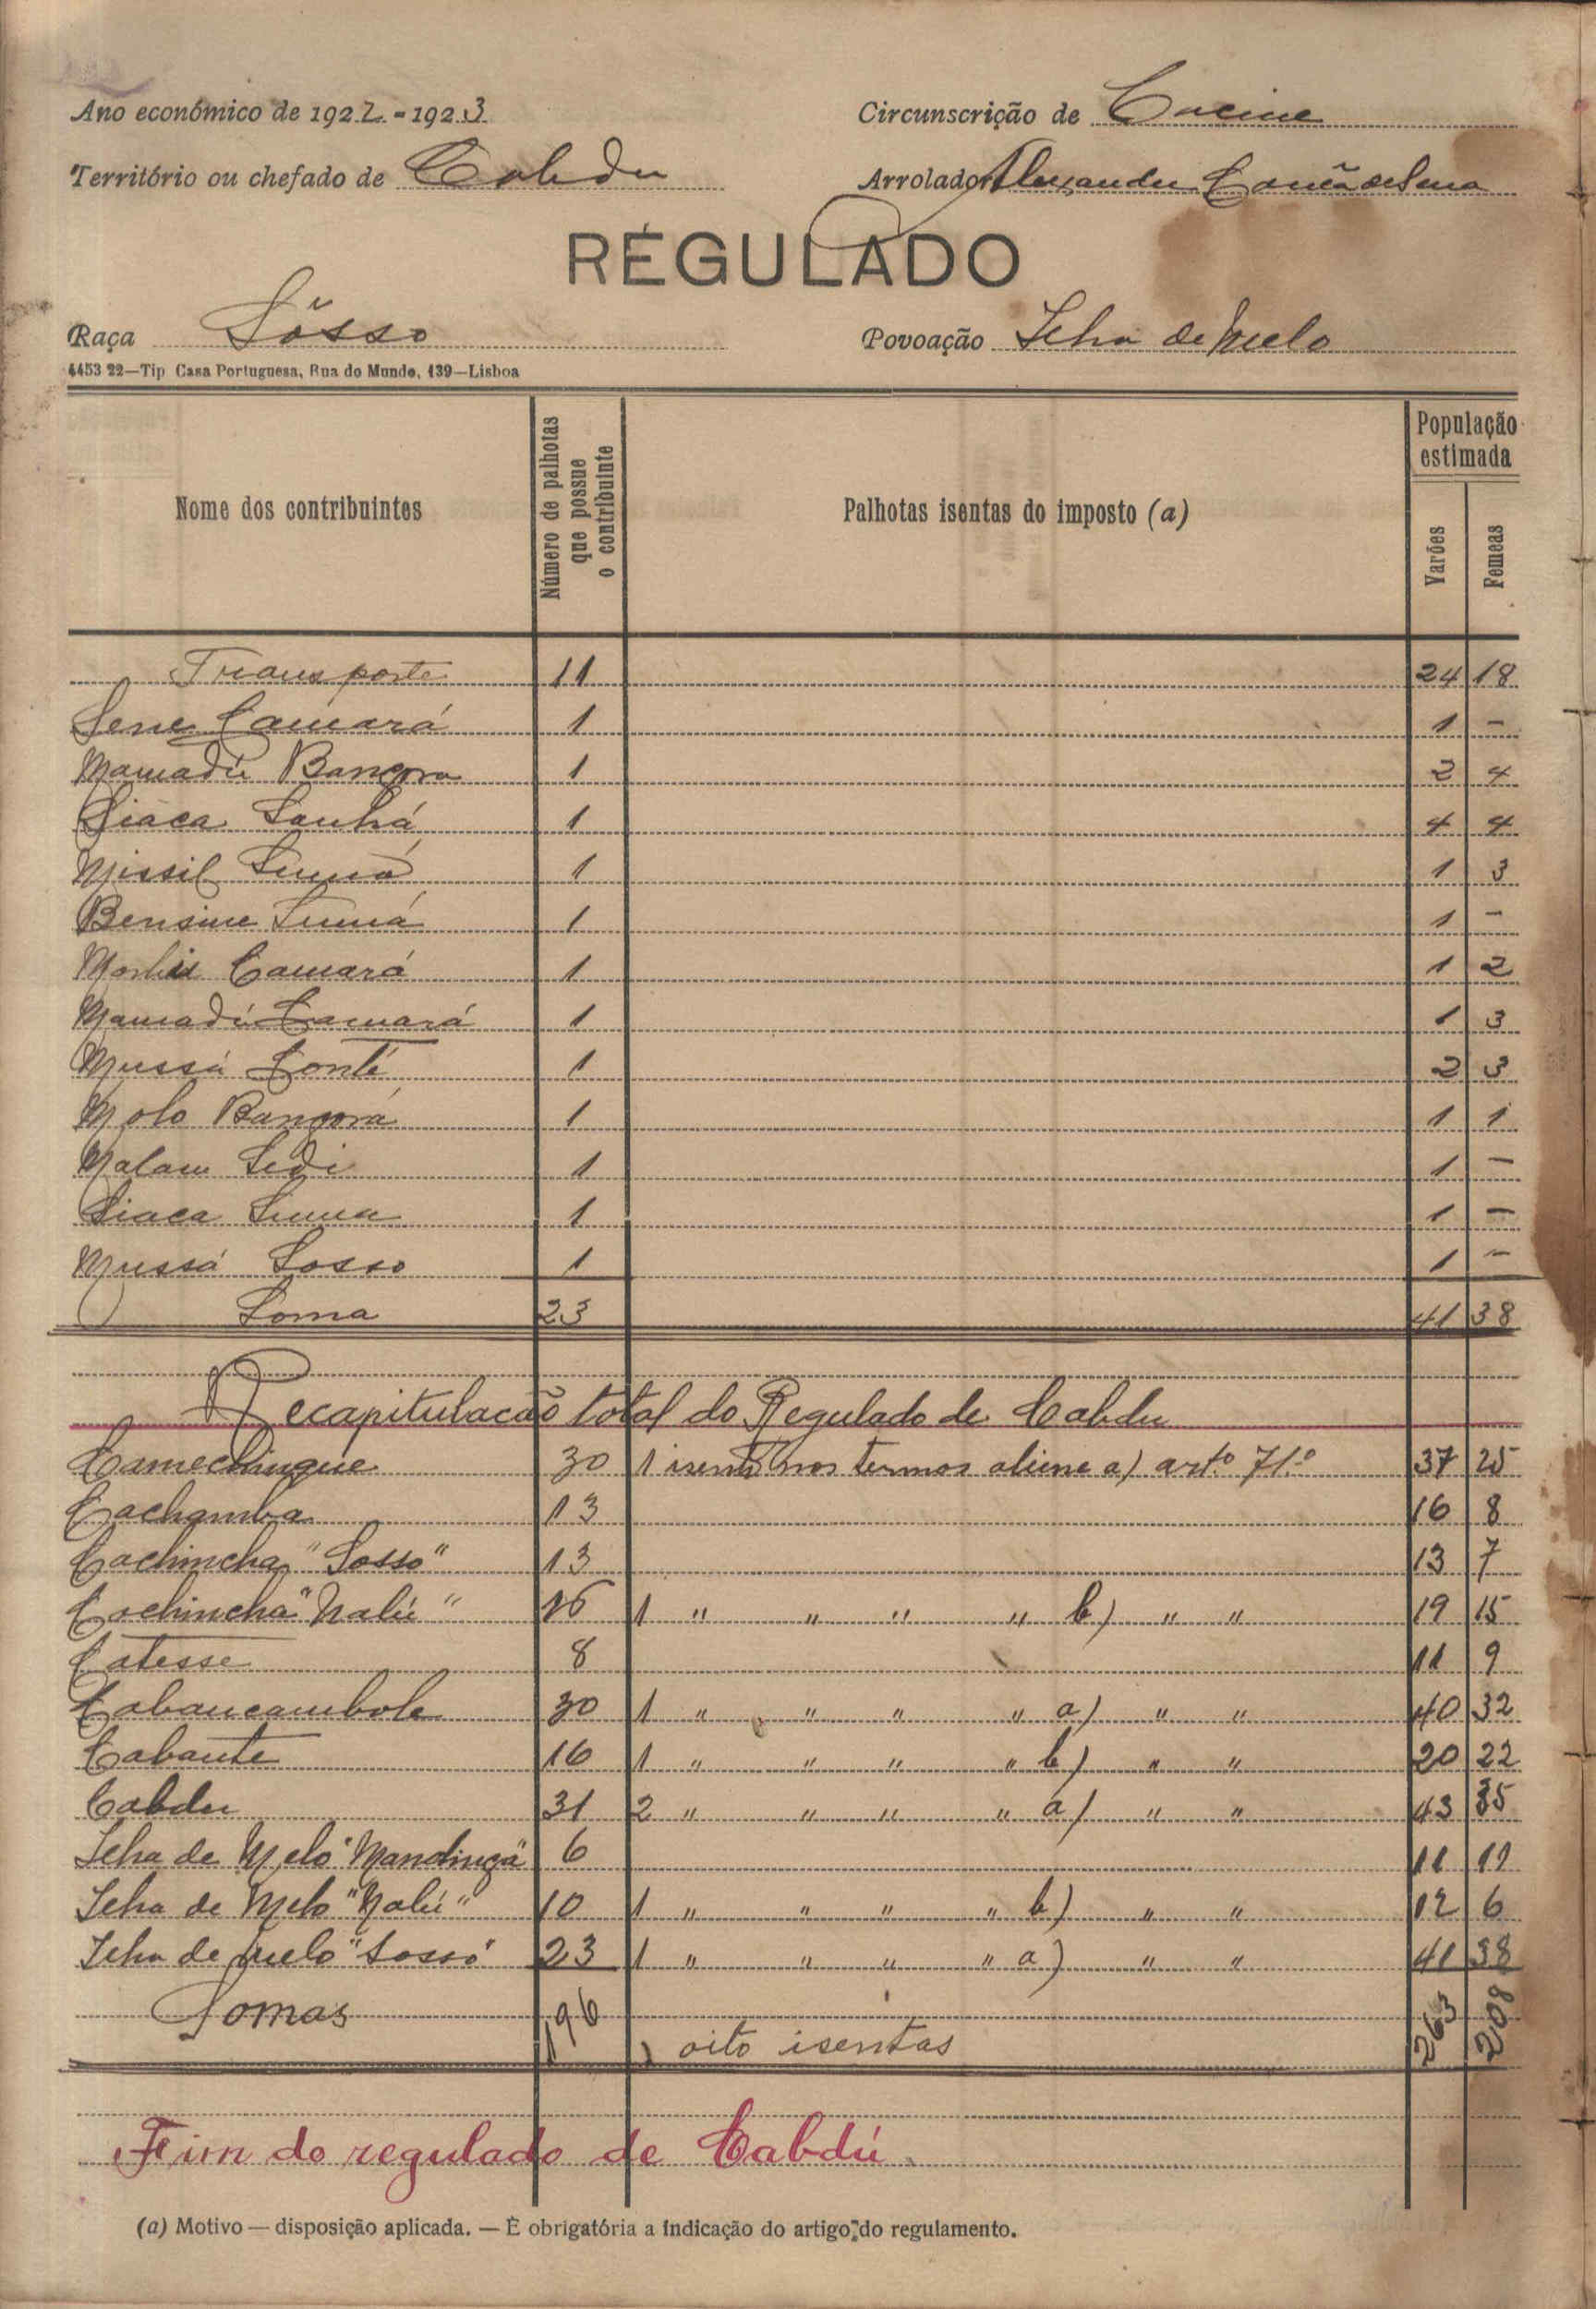 Ano económico de 1922-1923
Circunscrição de Cacine
Território ou chefado de Cabdu
Arrolador Alexandre
REGULADO
Raça Sôsso
Povoação Ilha de Melo
4453 22—Tip Casa Portuguesa, Rua do Mundo, 139—Lisboa
Nome dos contribuintes
Número de palhotas que possue o contribuinte
Palhotas isentas do imposto (a)
População estimada
Varões
Femeas
Transporte 11 24 18
Sene Camará 1 1 -
Mamadú Bangora 1 2 4
Siaca Sanhá 1 4 4
Missil Summá 1 1 3
Bensine Summá 1 1 -
Camará 1 1 2
Mamadú Camará 1 1 3
Mussá Conté 1 2 3
Molo Bangorá 1 1 1
Malam Sedi 1 1 -
Siaca Summa 1 1 -
Mussá Sosso 1 1 -
Soma 23 41 38
Recapitulacão total do Regulado de Cabdu
Camechingue 30 1 isenta nos termos aliene a) art.º 71.º 37 25
Cachamba 13 16 8
Cachincha "Sosso" 13 13 7
Cachincha "Nalú" 16 1 " " " " b) " " 19 15
Catesse 8 11 9
Cabancambole 30 1 " " " " a) " " 40 32
Cabante 16 1 " " " " b) " " 20 22
Cabdu 31 2 " " " " a) " " 43 35
Ilha de Melo "Mandinga" 6 11 11
Ilha de Melo "Nalú" 10 1 " " " " b) " " 12 6
Ilha de Melo "Sosso" 23 1 " " " " a) " " 41 38
Somas 196 263 208
oito isentas
Fim do regulado de Cabdú
(a) Motivo — disposição aplicada. — É obrigatória a indicação do artigo do regulamento.